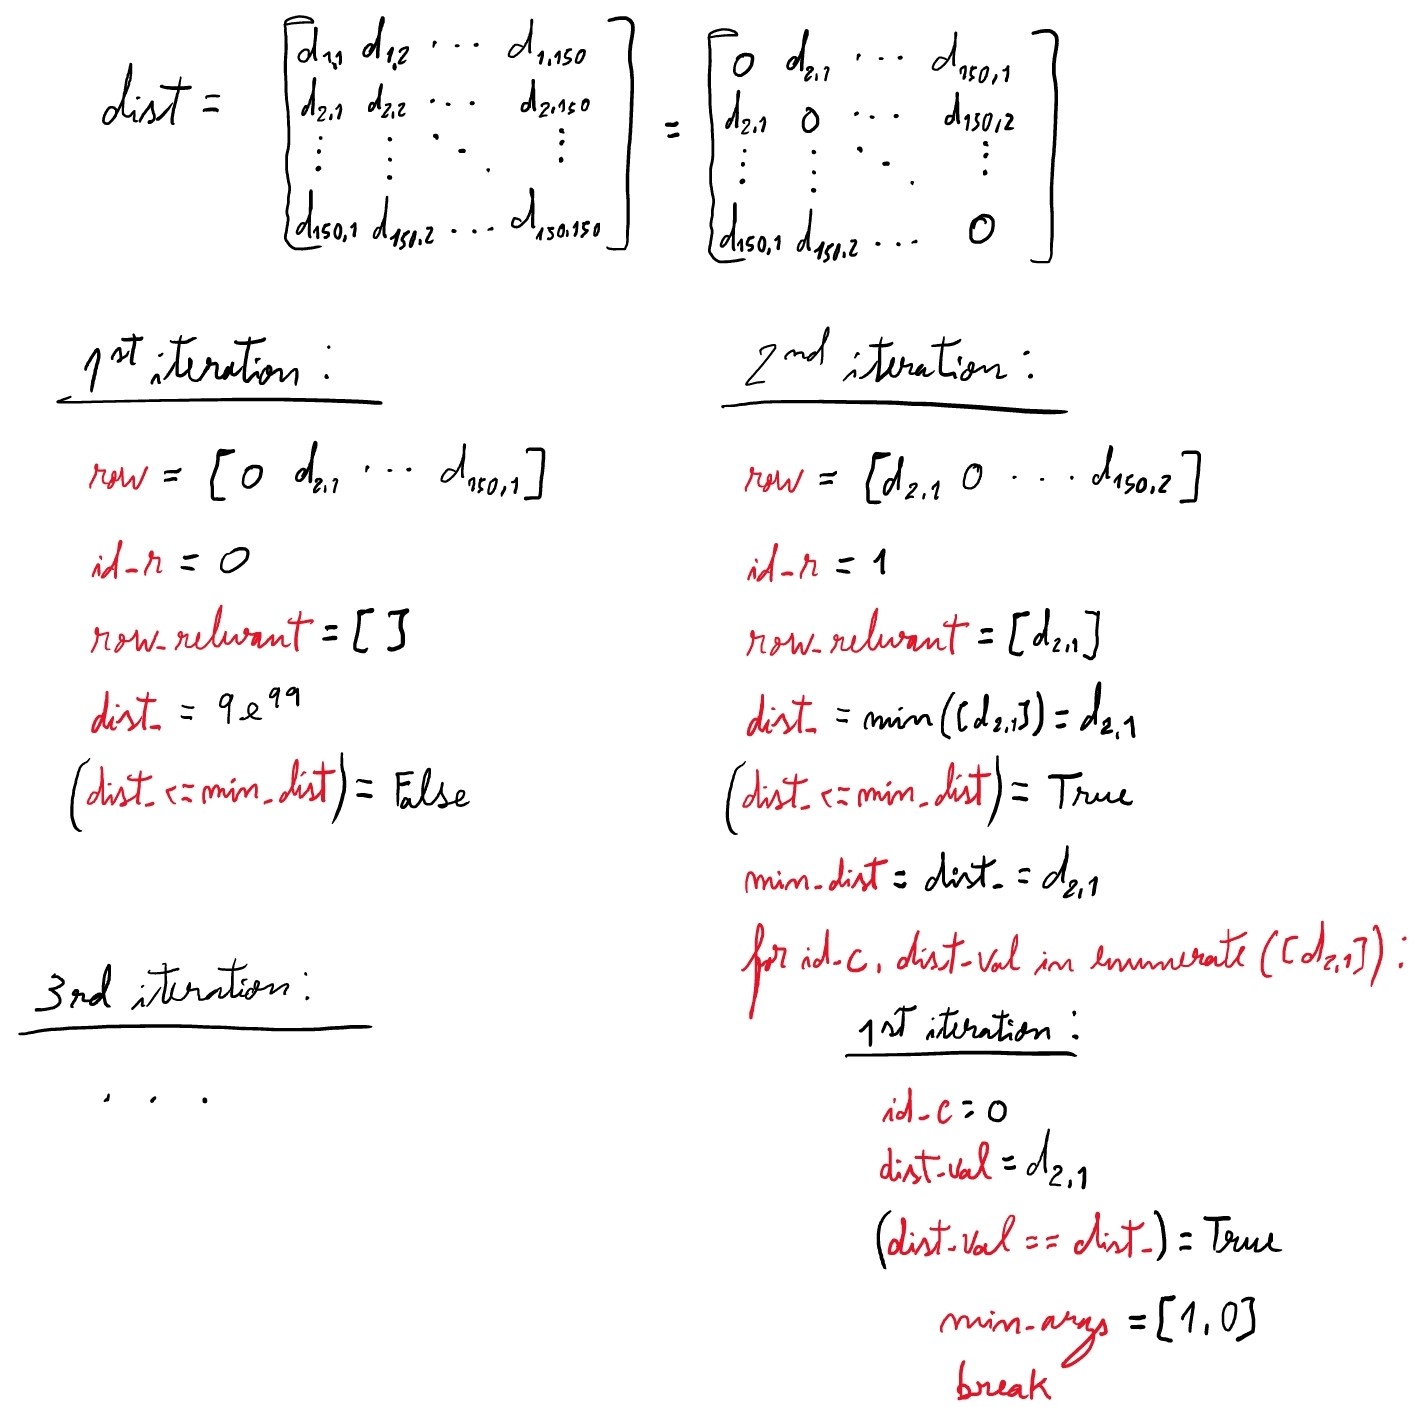 dist = [d1,1 d1,2 ... d1,150 = [0 d2,1 ... d150,1
d2,1 d2,2 ... d2,150 d2,1 0 ... d150,2
⋮ ⋮ ⋱ ⋮ ⋮ ⋮ ⋱ ⋮
d150,1 d150,2 ... d150,150] d150,1 d150,2 ... 0]
1st iteration:
row = [0 d2,1 ... d150,1]
id_r = 0
row_relevant = [ ]
dist_ = 9e99
(dist_ <= min_dist) = False
2nd iteration:
row = [d2,1 0 ... d150,2]
id_r = 1
row_relevant = [d2,1]
dist_ = min([d2,1]) = d2,1
(dist_ <= min_dist) = True
min_dist = dist_ = d2,1
for id_c, dist_val in enumerate([d2,1]):
1st iteration:
id_c = 0
dist_val = d2,1
(dist_val == dist_) = True
min_args = [1,0]
break
3rd iteration:
...